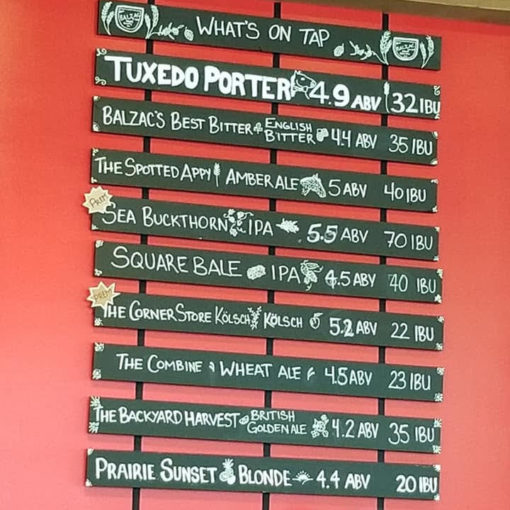 WHAT'S ON TAP
TUXEDO PORTER 4.9 ABV 32 IBU
BALZAC'S BEST BITTER ENGLISH BITTER 4.4 ABV 35 IBU
THE SPOTTED APPY AMBER ALE 5 ABV 40 IBU
SEA BUCKTHORN IPA 5.5 ABV 70 IBU
SQUARE BALE IPA 4.5 ABV 40 IBU
THE CORNER STORE KÖLSCH KÖLSCH 5.2 ABV 22 IBU
THE COMBINE WHEAT ALE 4.5 ABV 23 IBU
THE BACKYARD HARVEST BRITISH GOLDEN ALE 4.2 ABV 35 IBU
PRAIRIE SUNSET BLONDE 4.4 ABV 20 IBU